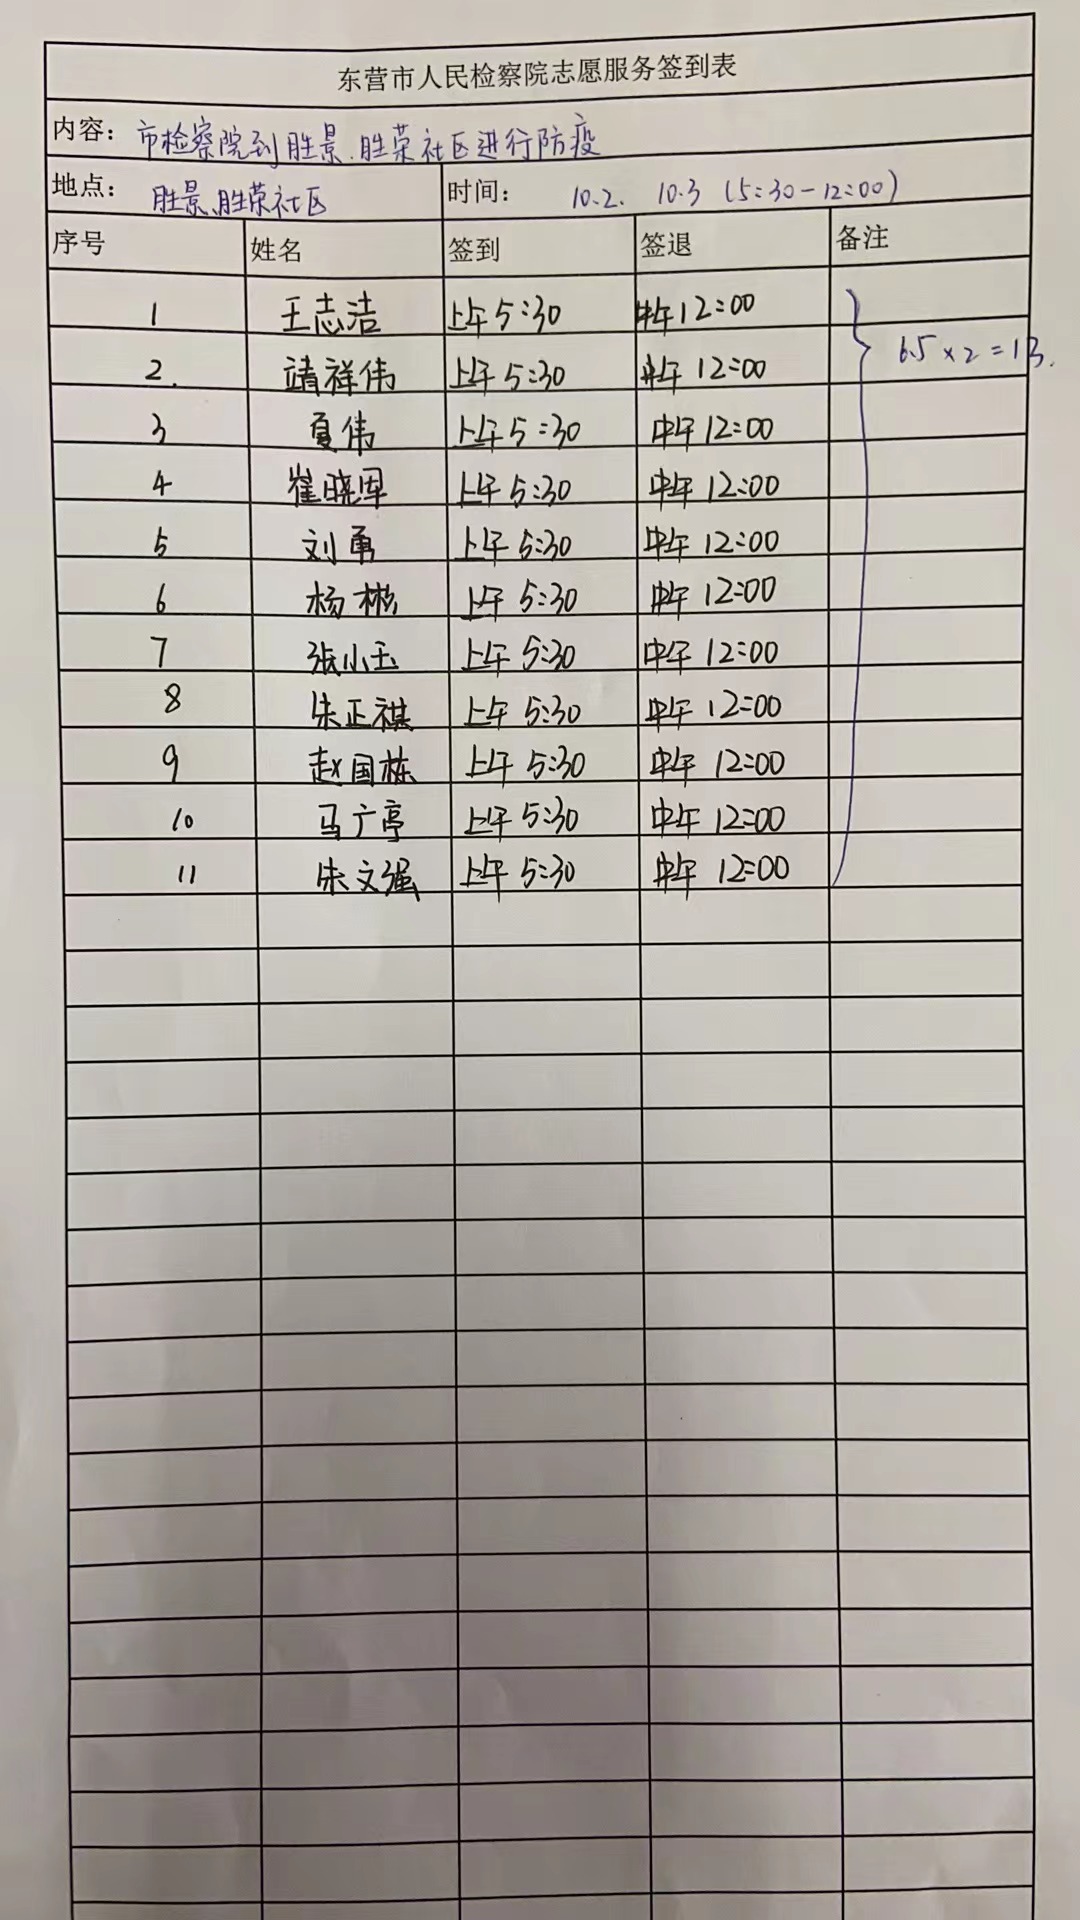 东营市人民检察院志愿服务签到表
内容：市检察院到胜景、胜荣社区进行防疫
地点：胜景、胜荣社区 时间：10.2. 10.3 (5:30-12:00)
序号 姓名 签到 签退 备注
1 王志洁 上午5:30 中午12:00
6.5×2=13.
2. 靖祥伟 上午5:30 中午12:00
3 夏伟 上午5:30 中午12:00
4 崔晓军 上午5:30 中午12:00
5 刘勇 上午5:30 中午12:00
6 杨彬 上午5:30 中午12:00
7 张小玉 上午5:30 中午12:00
8 朱正祺 上午5:30 中午12:00
9 赵国栋 上午5:30 中午12:00
10 马广亭 上午5:30 中午12:00
11 朱文强 上午5:30 中午12:00